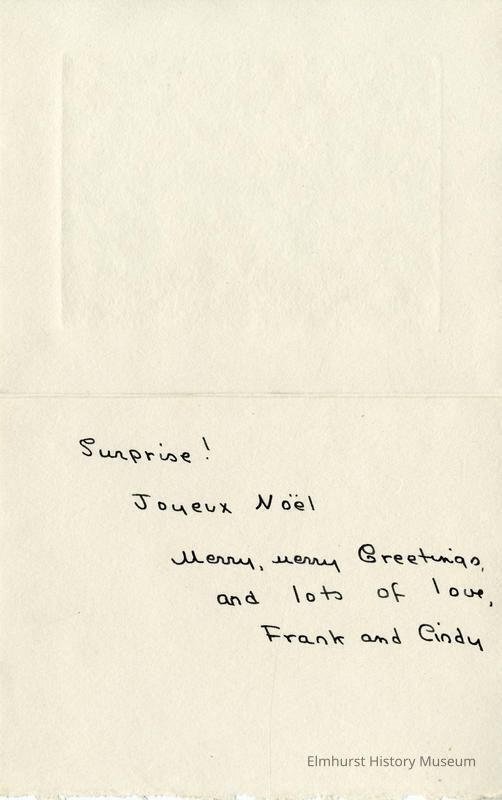 Surprise!
Joyeux Noël
Merry, merry Greetings,
and lots of love,
Frank and Cindy
Elmhurst History Museum